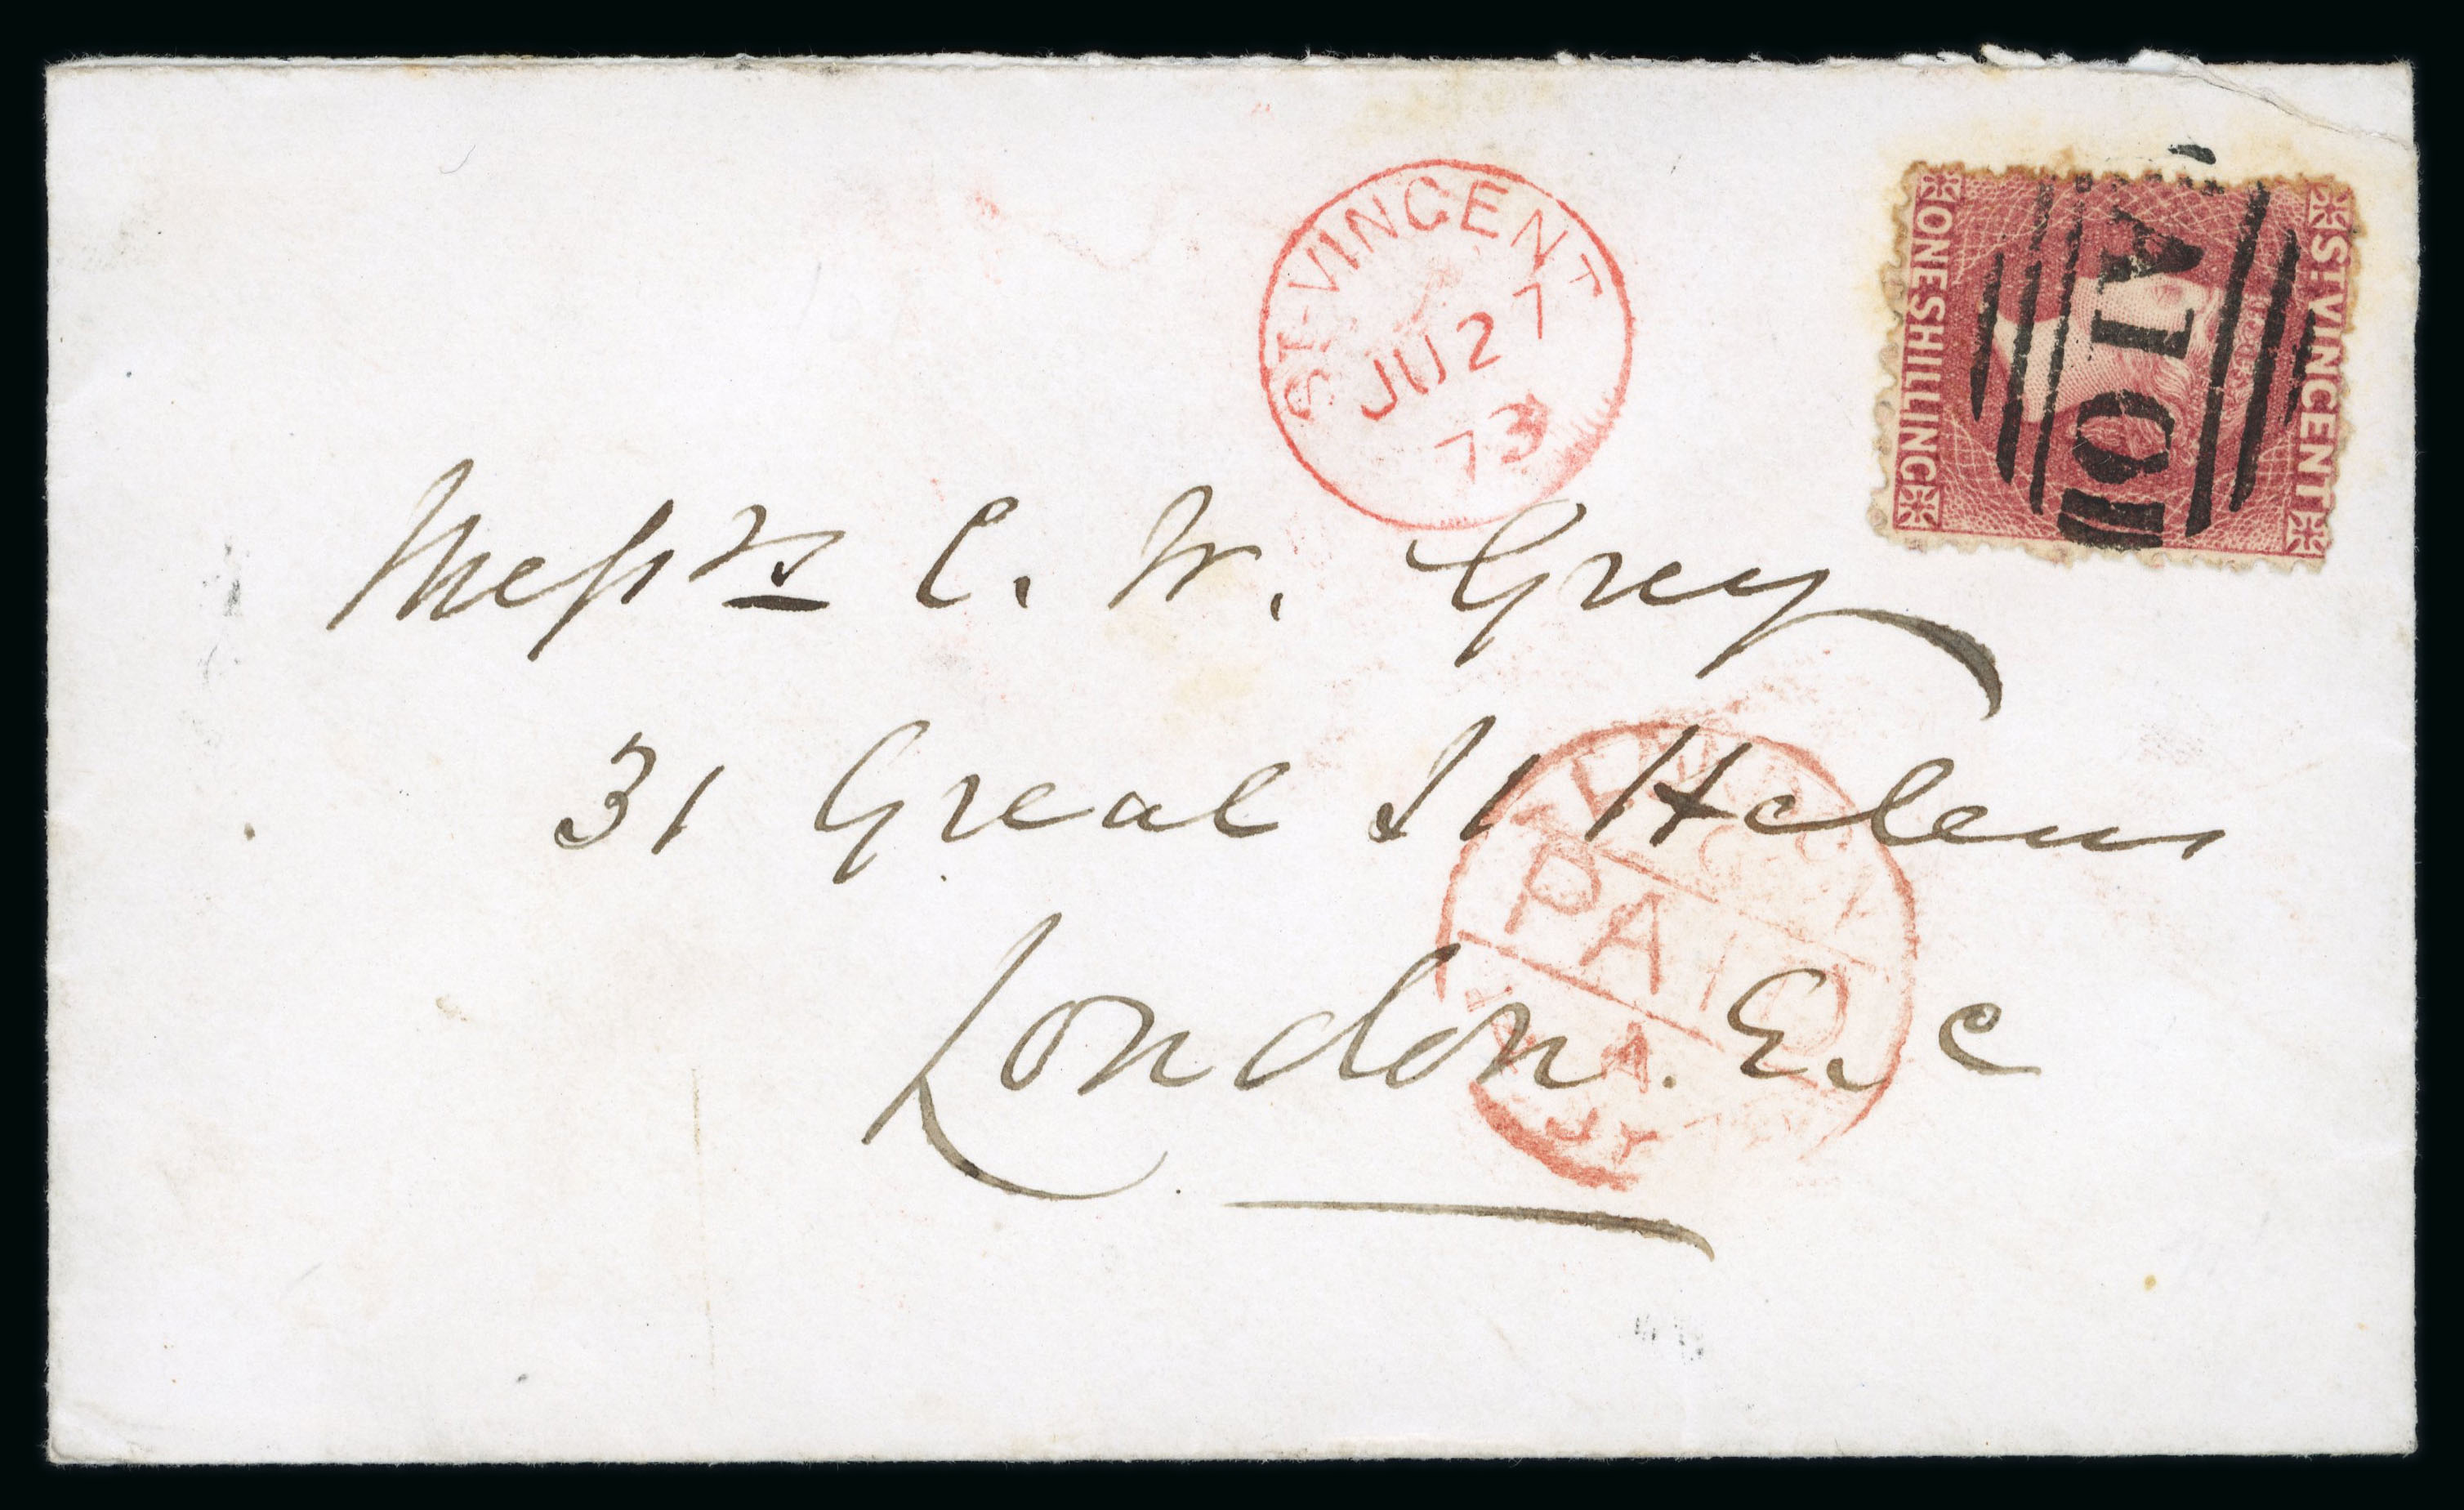 ST. VINCENT
JU 27
73
ST. VINCENT
ONE SHILLING
A10
Messrs C. W. Grey
31 Great St Helens
London. E. C
PAID
A
JY